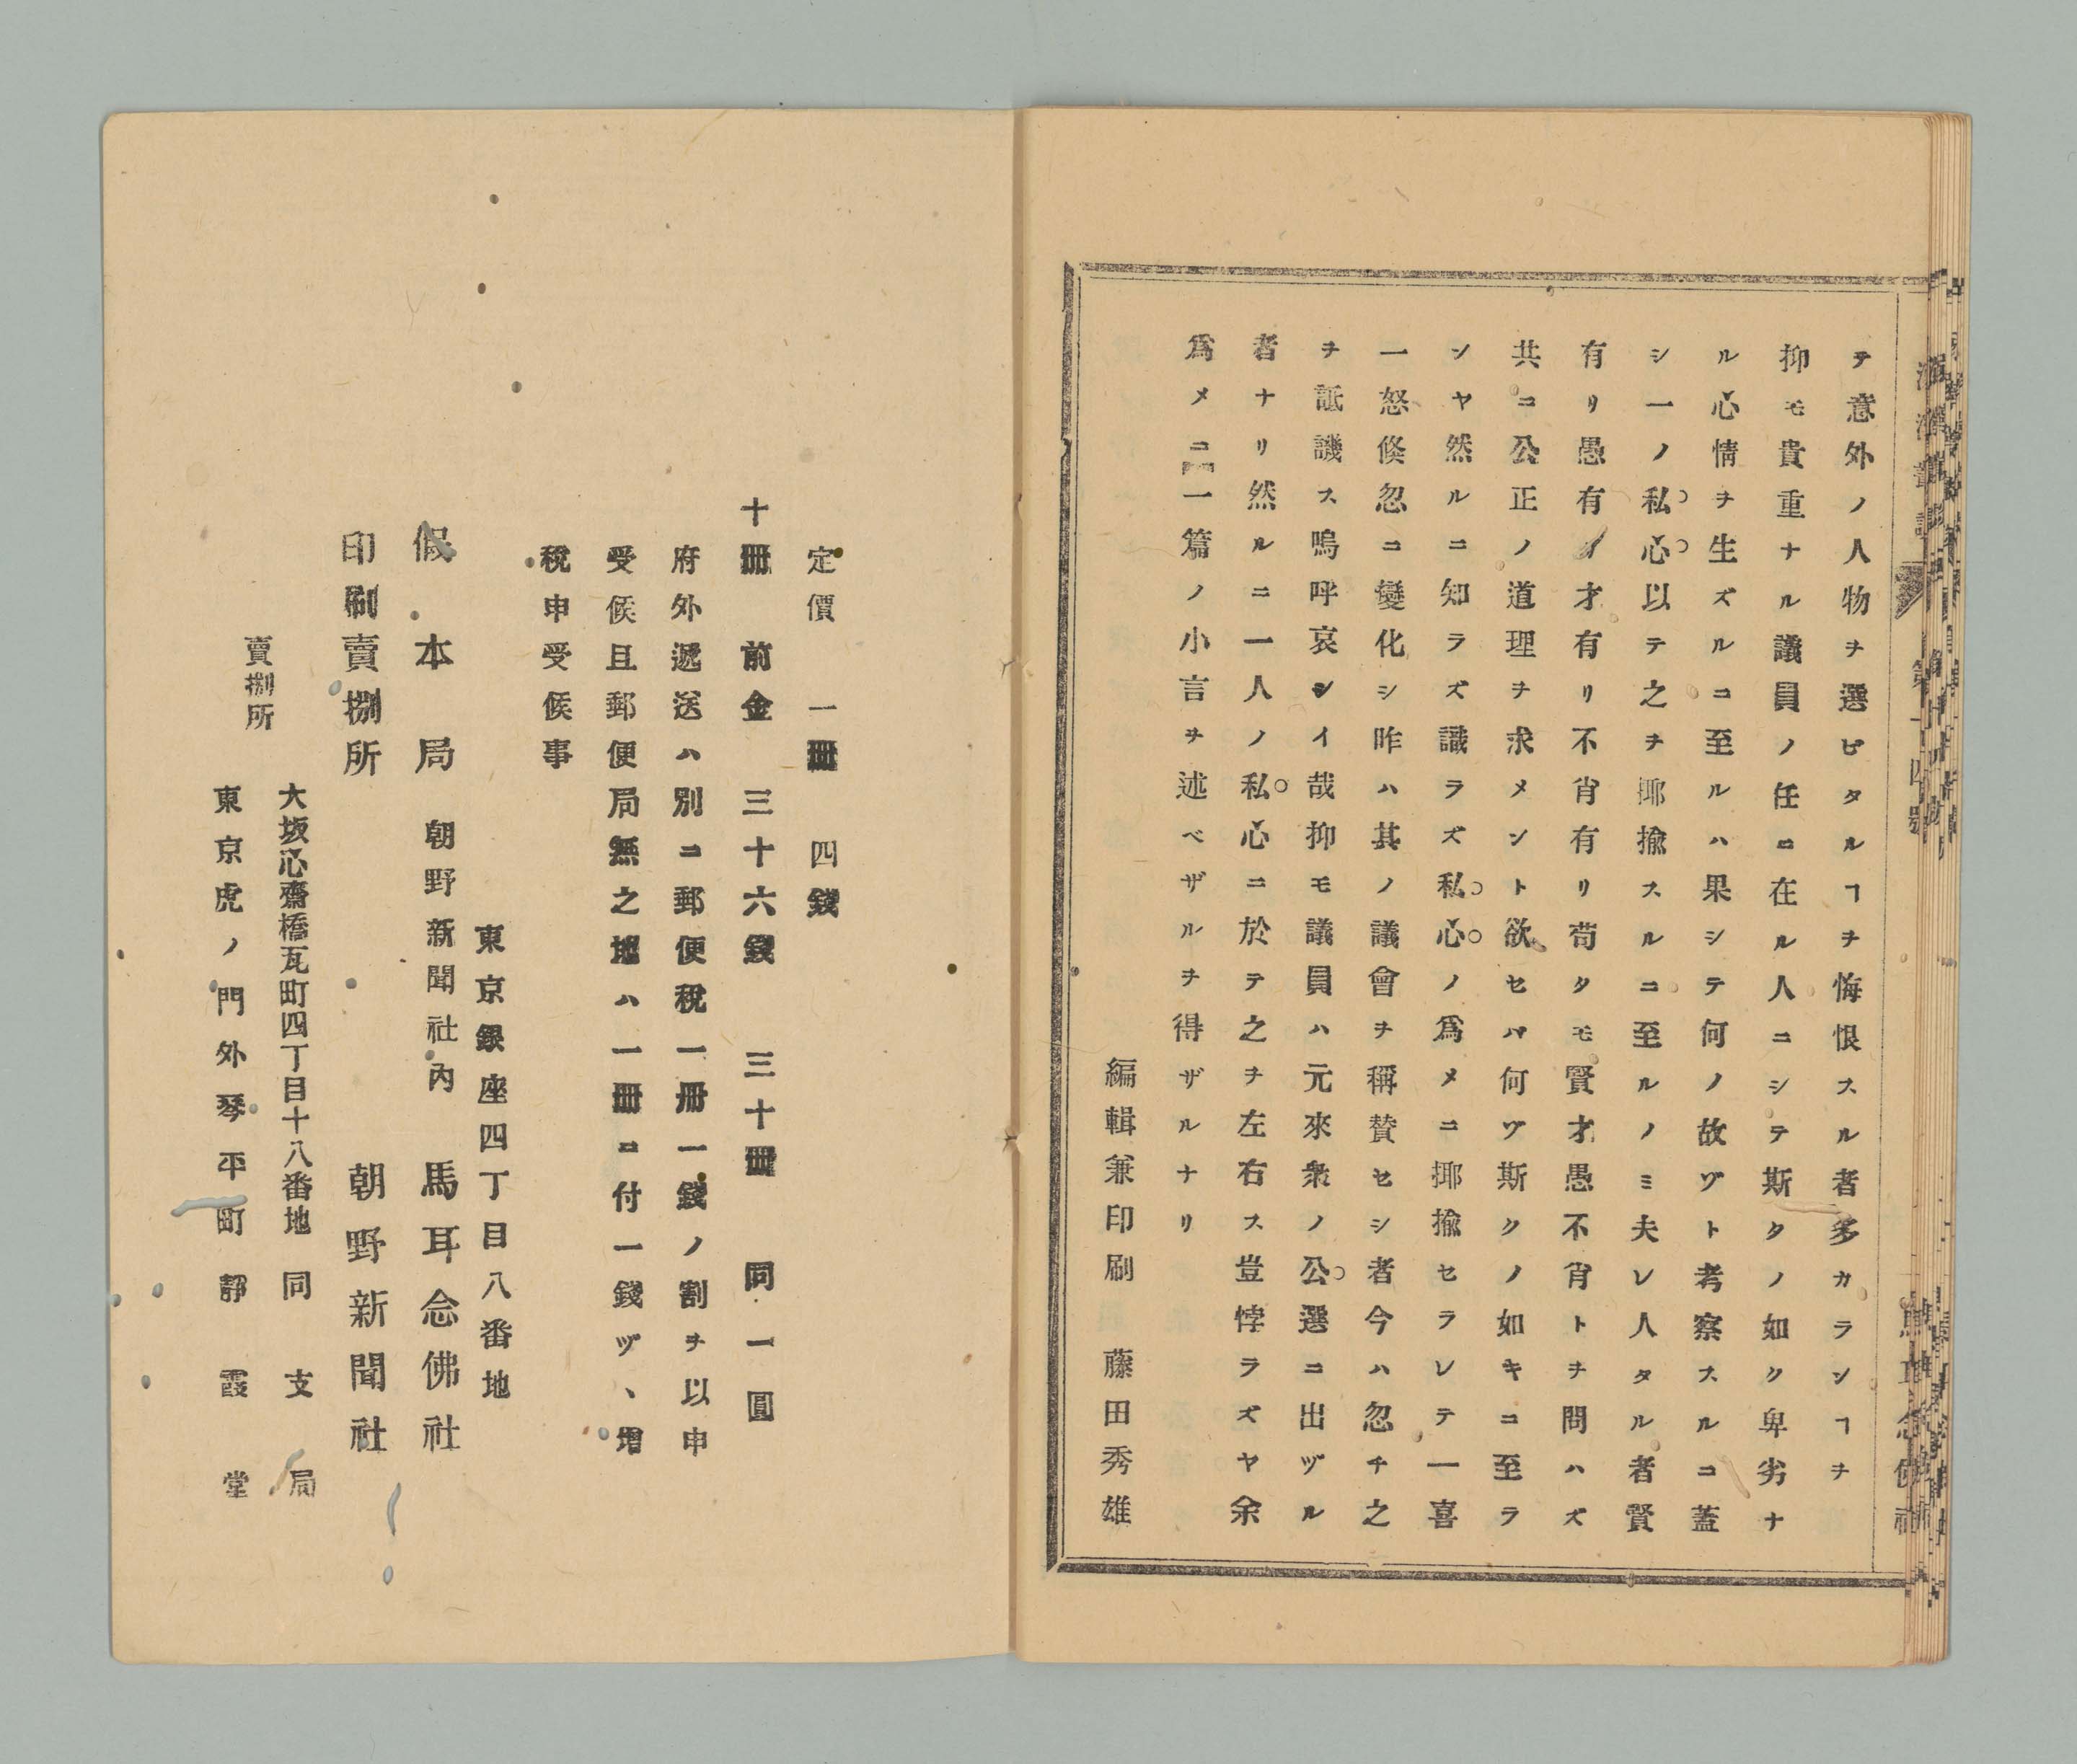 テ意外ノ人物ヲ選ビタルヿヲ悔恨スル者多カランヿヲ
抑モ貴重ナル議員ノ任ニ在ル人ニシテ斯クノ如ク卑劣ナ
ル心情ヲ生ズルニ至ルハ果シテ何ノ故ゾト考察スルニ蓋
シ一ノ私心以テ之ヲ揶揄スルニ至ルノミ夫レ人タル者賢
有リ愚有リ才有リ不肖有リ苟タモ賢才愚不肖トヲ問ハズ
共ニ公正ノ道理ヲ求メント欲セバ何ゾ斯クノ如キニ至ラ
ンヤ然ルニ知ラズ識ラズ私心ノ爲メニ揶揄セラレテ一喜
一怒倏忽ニ變化シ昨ハ其ノ議會ヲ稱賛セシ者今ハ忽チ之
ヲ詆譏ス嗚呼哀シイ哉抑モ議員ハ元來衆ノ公選ニ出ヅル
者ナリ然ルニ一人ノ私心ニ於テ之ヲ左右ス豈悖ラズヤ余
爲メニ一篇ノ小言ヲ述ベザルヲ得ザルナリ
編輯兼印刷 藤田秀雄
定價 一冊 四錢
十冊 前金 三十六錢 三十冊 同 一圓
府外遞送ハ別ニ郵便税一冊一錢ノ割ヲ以申
受候且郵便局無之地ハ一冊ニ付一錢ヅヽ増
税申受候事
東京銀座四丁目八番地
假本局 朝野新聞社內 馬耳念佛社
印刷賣捌所 朝野新聞社
大坂心齋橋瓦町四丁目十八番地 同支局
賣捌所
東京虎ノ門外琴平町 靜霞堂